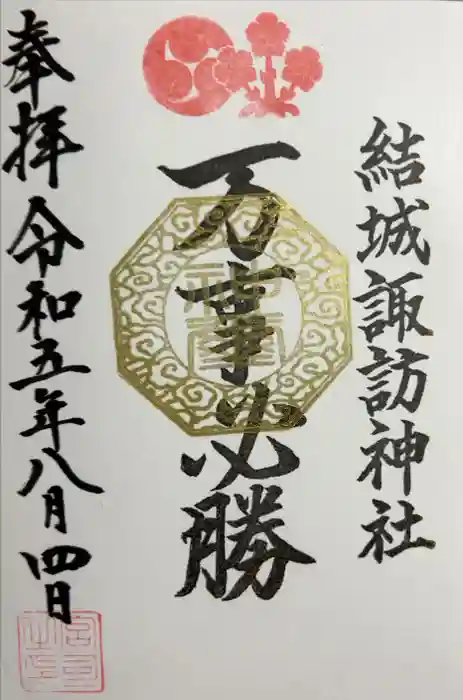 結城諏訪神社
万事必勝
奉拝 令和五年八月四日
宮司之印